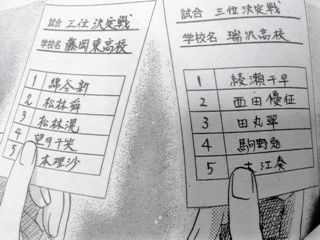 試合 三位決定戦
学校名 藤岡東高校
1 綿谷新
2 松林舜
3 松林滉
4 望月千実
5 木理沙
試合 三位決定戦
学校名 瑞沢高校
1 綾瀬千早
2 西田優征
3 田丸翠
4 駒野勉
5 大江奏